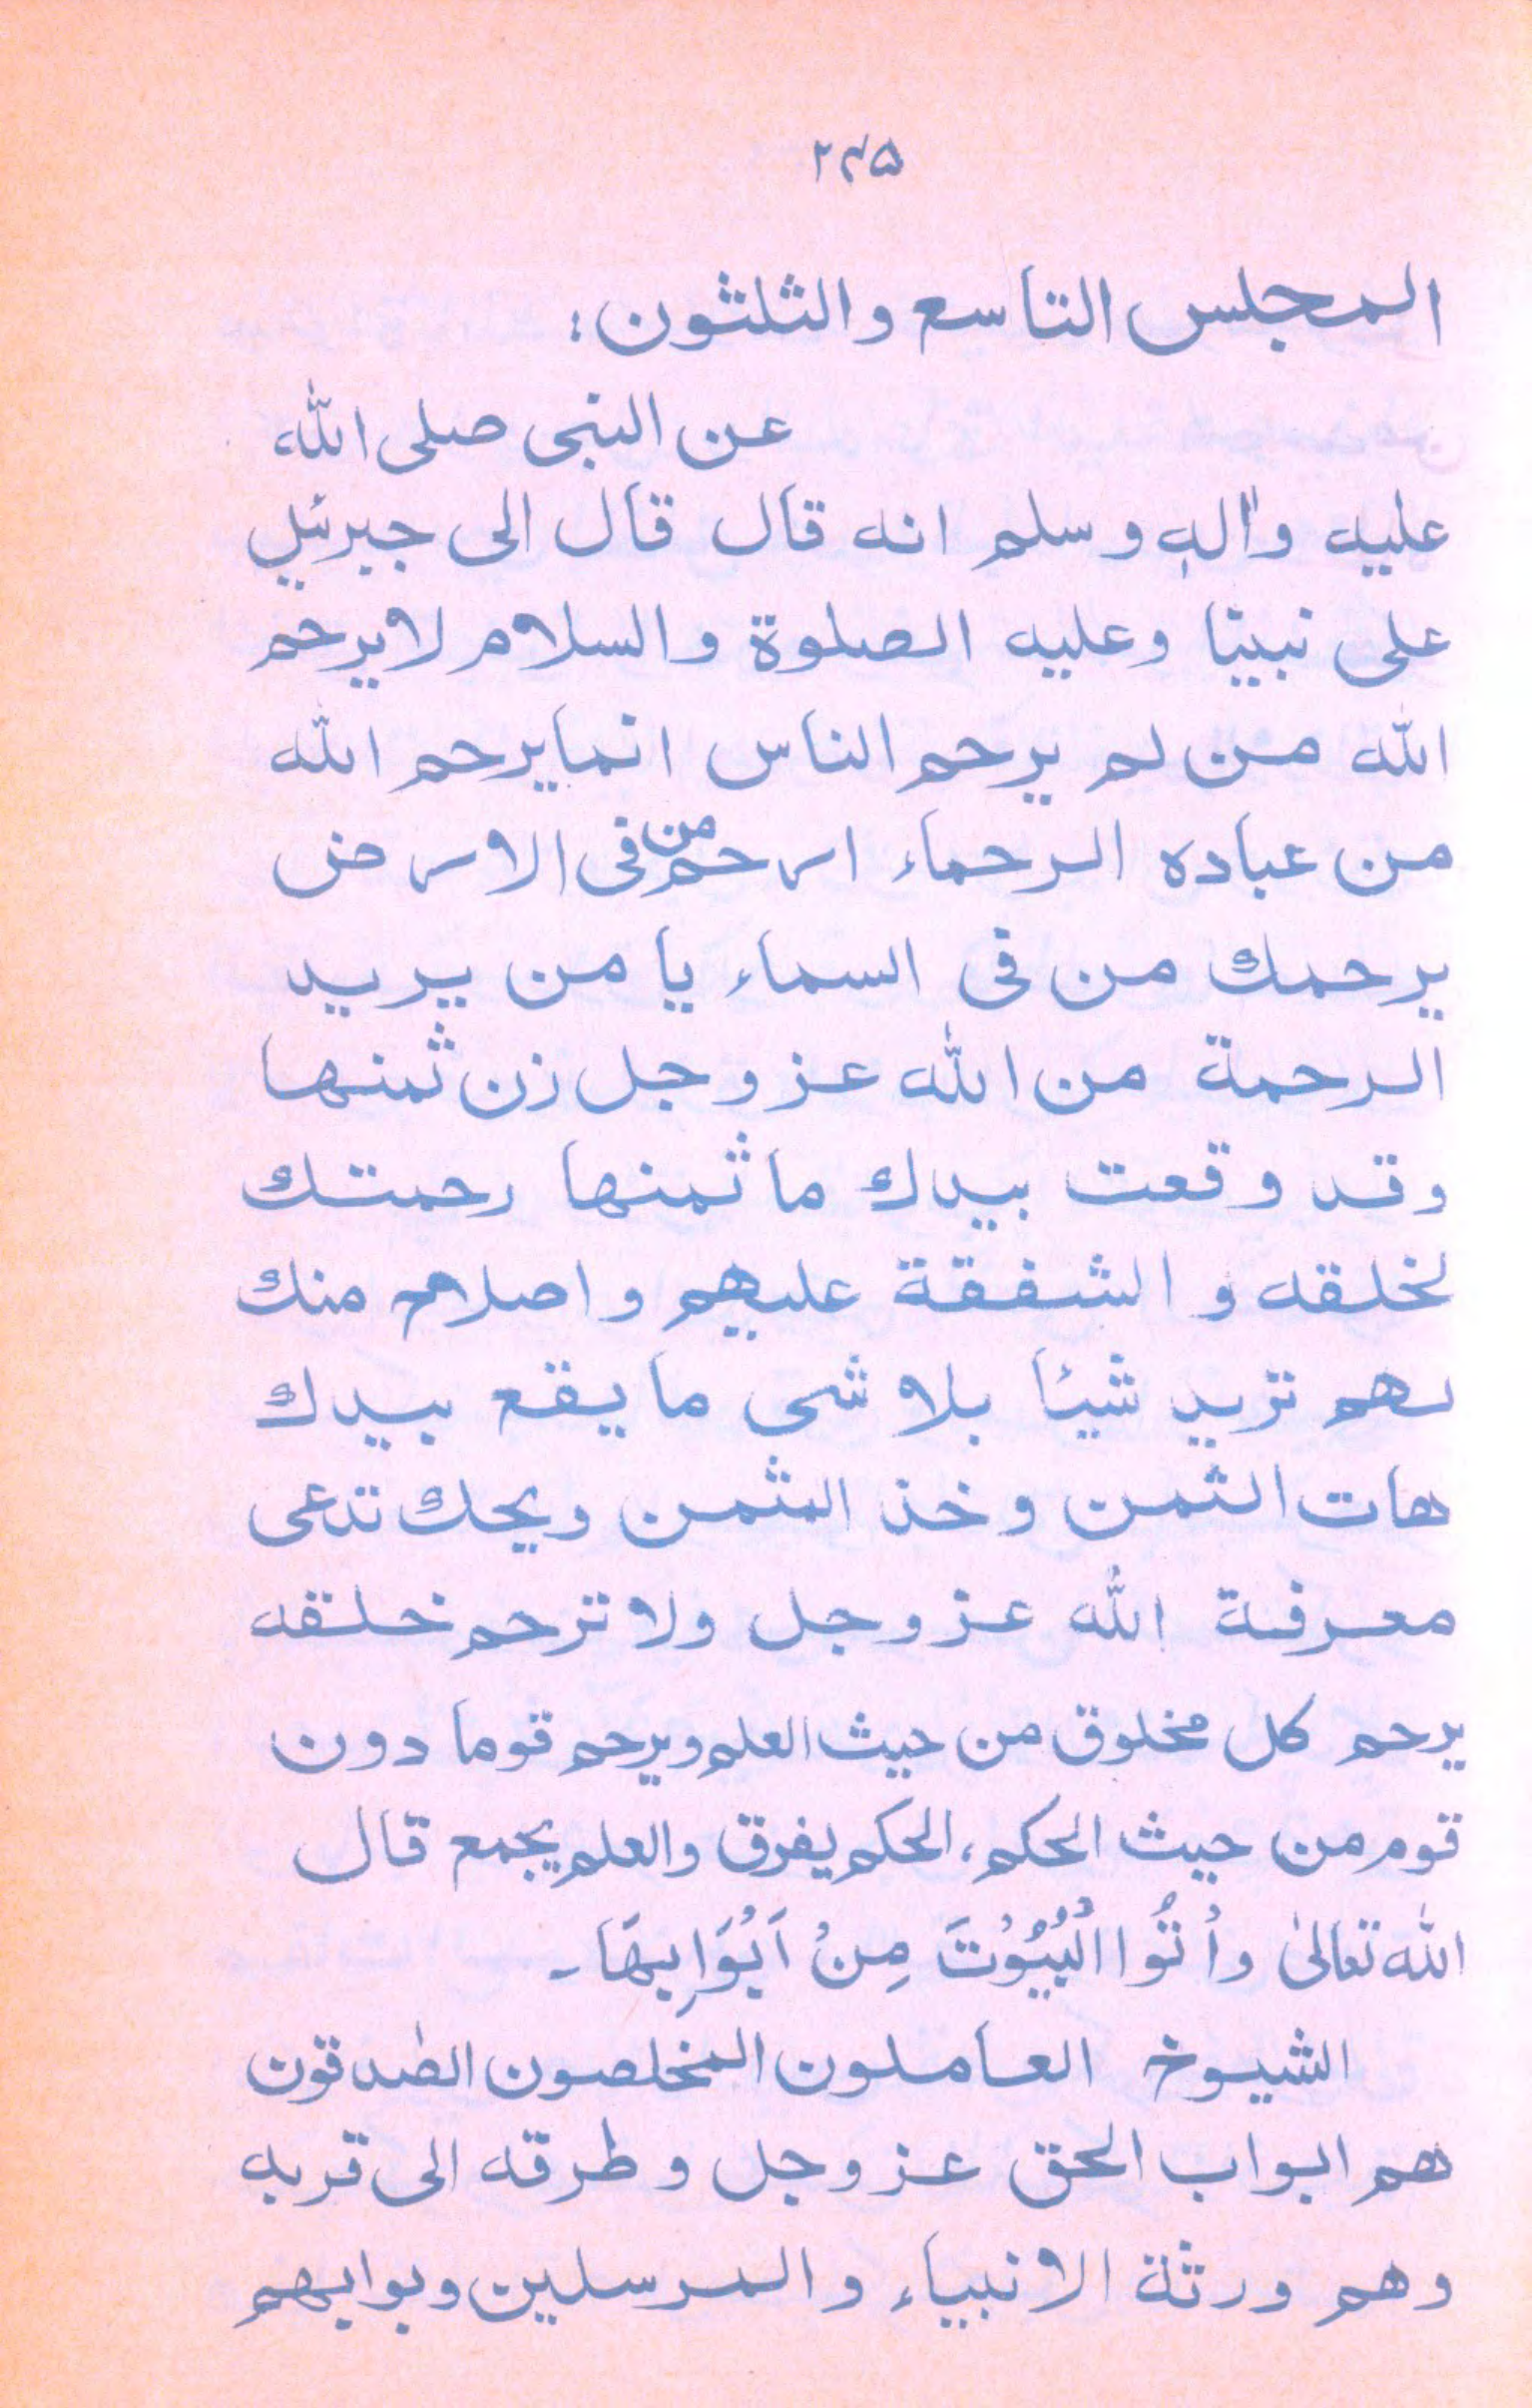 ۲۴۵
المجلس التاسع والثلثون:
عن النبی صلی اللّٰہ
علیه واٰلهٖ وسلم انه قال قال الی جبرئیل
علی نبینا وعلیه الصلوة والسلام لایرحم
اللّٰه من لم یرحم الناس انما یرحم اللّٰه
من عباده الرحماء ارحم من فی الارض
یرحمك من فی السماء یا من یرید
الرحمة من اللّٰه عز وجل زن ثمنها
وقد وقعت بیدك ما ثمنها رحمتك
لخلقه و الشفقة علیهم و اصلاح منك
لهم ترید شیئا بلا شی ما یقع بیدك
هات الثمن وخذ المثمن ویحك تدعی
معرفة اللّٰه عز وجل ولا ترحم خلقه
یرحم کل مخلوق من حیث العلم ویرحم قوما دون
قوم من حیث الحکم، الحکم یفرق والعلم یجمع قال
اللّٰه تعالیٰ وأْتُوا الْبُیُوْتَ مِنْ اَبْوَابِهَا۔
الشیوخ العاملون المخلصون الصٰدقون
هم ابواب الحق عز وجل وطرقه الی قربه
وهم ورثة الانبیاء والمرسلین وبوابهم